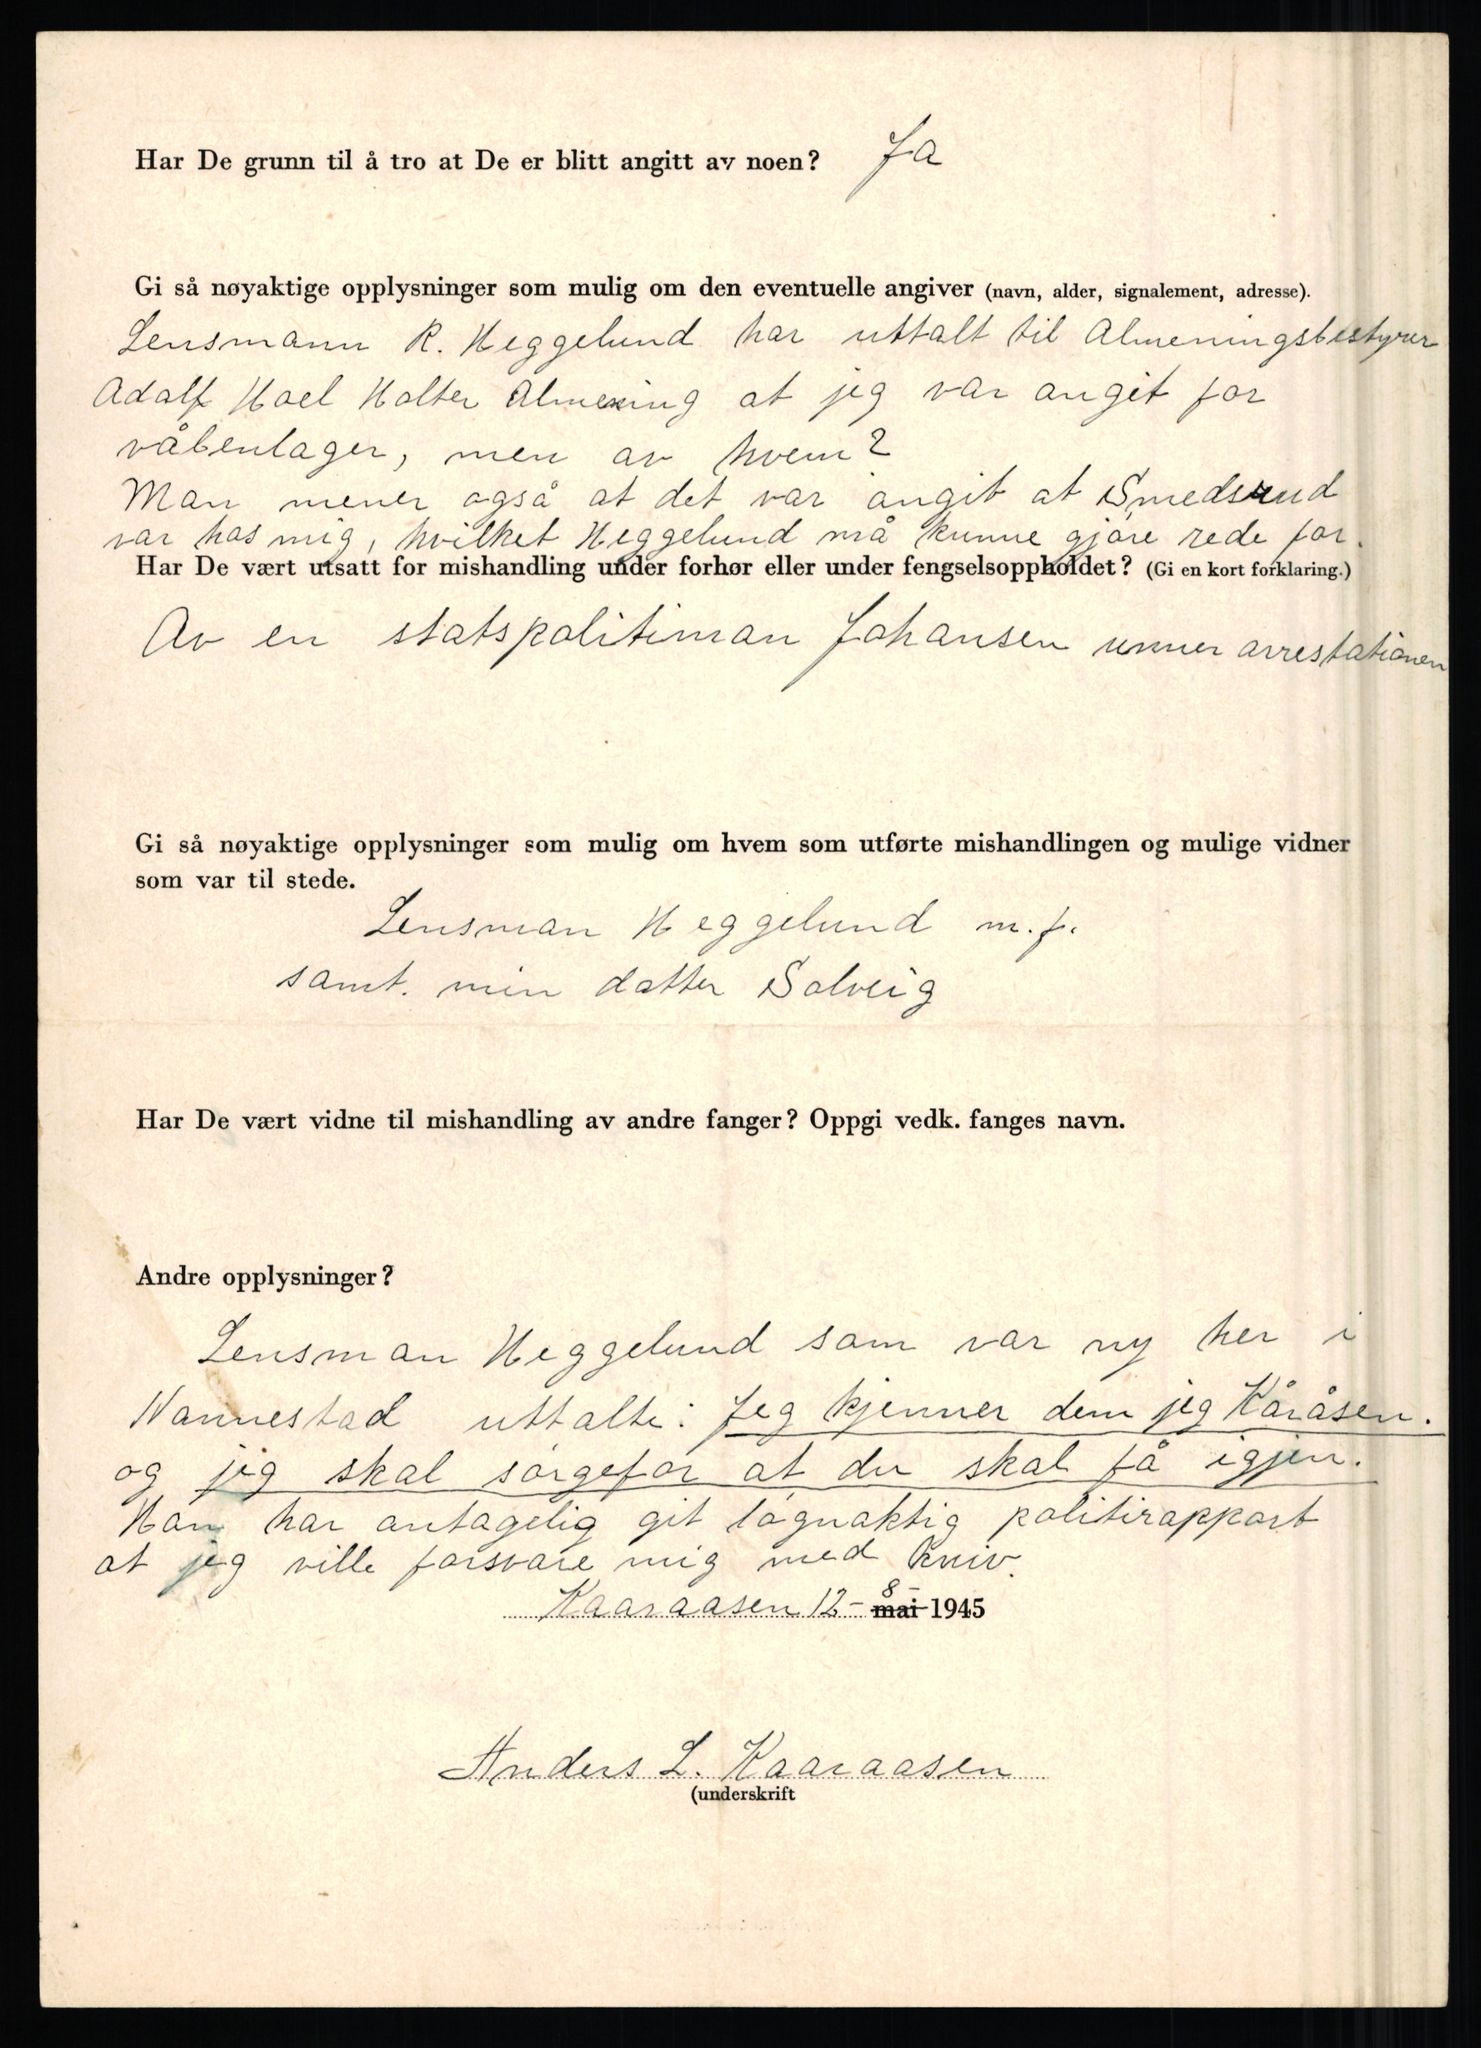 Har De grunn til å tro at De er blitt angitt av noen? Ja
Gi så nøyaktige opplysninger som mulig om den eventuelle angiver (navn, alder, signalement, adresse).
Lensmann R. Heggelund har uttalt til Almeningsbestyrer
Adolf Hoel Holter Almening at jeg var angit for
våbenlager, men av hvem?
Man mener også at det var angit at Smedsrud
var hos mig, hvilket Heggelund må kunne gjøre rede for.
Har De vært utsatt for mishandling under forhør eller under fengselsoppholdet? (Gi en kort forklaring.)
Av en statspolitiman Johansen unner arrestationen
Gi så nøyaktige opplysninger som mulig om hvem som utførte mishandlingen og mulige vidner
som var til stede.
Lensman Heggelund m.f.
samt. min datter Solveig
Har De vært vidne til mishandling av andre fanger? Oppgi vedk. fanges navn.
Andre opplysninger?
Lensman Heggelund som var ny her i
Nannestad uttalte: Jeg kjenner dem jeg Kåråsen.
og jeg skal sørgefor at du skal få igjen.
Han har antagelig git løgnaktig politirapport
at jeg ville forsvare mig med kniv.
Kaaraasen 12- 8- mai 1945
Anders L. Kaaraasen
(underskrift